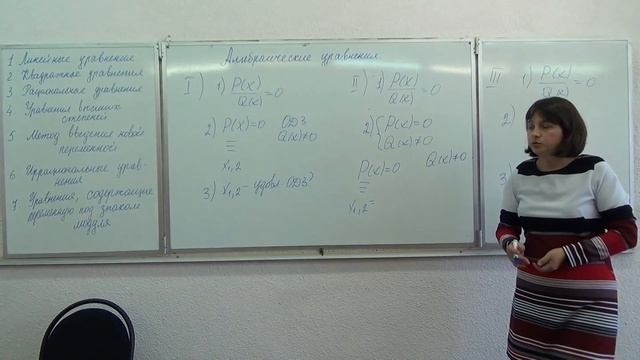 1 Линейные уравнения
2 Квадратные уравнения
3 Рациональные уравнения
4 Уравнения высших
степеней
5 Метод введения новой
переменной
6 Иррациональные урав-
нения
7. Уравнения, содержащие
переменную под знаком
модуля
Алгебраические уравнения
I) 1) P(x)/Q(x) = 0
2) P(x)=0 ОДЗ
Q(x)≠0
x1,2
3) x1,2 – удовл. ОДЗ?
II) 1) P(x)/Q(x) = 0
2) { P(x)=0
Q(x)≠0
P(x)=0 Q(x)≠0
x1,2=
III 1) P(x)/Q(x) = 0
2)
3)